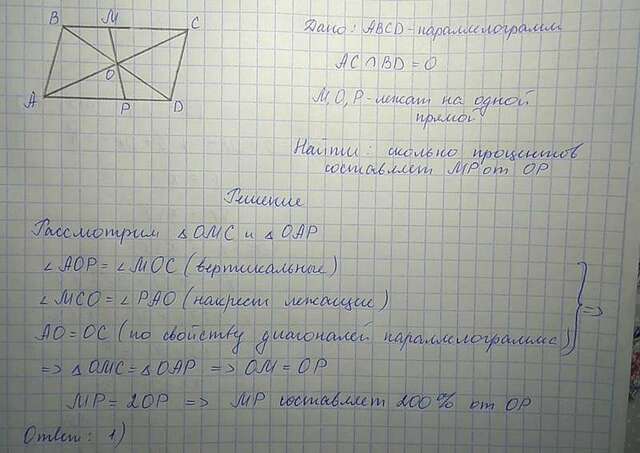 B M C
Дано: ABCD - параллелограмм
O
AC ∩ BD = O
A P D
M, O, P - лежат на одной
прямой
Найти: сколько процентов
составляет MP от OP
Решение
Рассмотрим △OMC и △OAP
∠AOP = ∠MOC (вертикальные)
∠MCO = ∠PAO (накрест лежащие)
AO = OC (по свойству диагоналей параллелограмма) } =>
=> △OMC = △OAP => OM = OP
MP = 2OP => MP составляет 200% от OP
Ответ: 1)